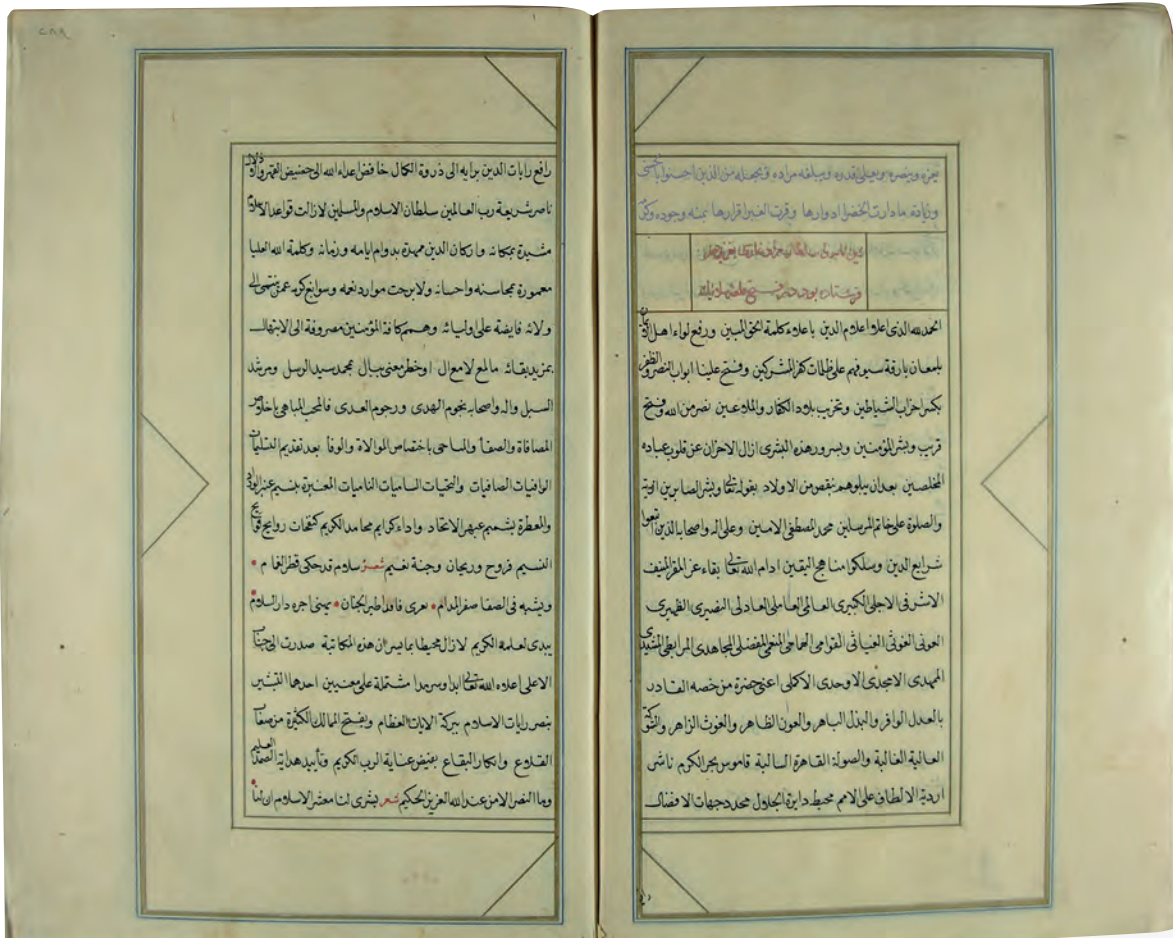 يعزه وينصره ويعلى قدره ويبلغه مراده ويجعله من الذين احسنوا الحسنى
وزيادة مادارت الخضرا ادوارها وقرت الغبرا قرارها بمنه وجوده وكرمه
فرستاده بودند در فتح
الحمد لله الذى اعلا اعلام الدين باعلاء كلمة الحق المبين ورفع لواء اهل الايمان
بلمعان بارقة سيوفهم على ظلمات كفر المشركين وفتح علينا ابواب النصر والظفر
بكسر احزاب الشياطين وتخريب بلاد الكفار والملاعين نصر من الله وفتح
قريب وبشر المؤمنين وبسرور هذه البشرى ازال الاحزان عن قلوب عباده
المخلصين بعد ان يبلوهم بنقص من الاولاد بقوله تعالى وبشر الصابرين
والصلوة على خاتم المرسلين محمد المصطفى الامين وعلى اله واصحابه الذين اتبعوا
شرايع الدين وسلكوا مناهج اليقين ادام الله تعالى بقاء عز المقر المنيف
الاشرفى الاجلى الكبيرى العالمى العاملى العادلى النصيرى الظهيرى
العونى الغوثى الغياثى القوامى الهمامى المنعمى المفضلى المجاهدى المرابطى المشيدى
الممهدى الامجدى الاوحدى الاكملى اعنى حضرة من خصه القادر
بالعدل الوافر والبذل الباهر والعون الظاهر والغوث الزاهر والشوكة
العالية الغالبة والصولة القاهرة السالبة قاموس بحر الكرم ناشر
اردية الالطاف على الامم محيط دايرة الجلول محدد جهات الافضال
رافع رايات الدين برايه الى ذروة الكمال خافض اعداء الله الى حضيض القهر والاذلال
ناصر شريعة رب العالمين سلطان الاسلام والمسلمين لازالت قواعد الاسلام
مشيدة بمكانه واركان الدين ممهدة بدوام ايامه وزمانه وكلمة الله العليا
معمورة بمحاسنه واحسانه ولابرحت موارد نعمه وسوابغ كرمه عمن ينتمى الى
ولائه فايضة على اوليائه وهمم كافة المؤمنين مصروفة الى الابتهال
بمزيد بقائه مالمع لامع ال اوخطر معنى ببال بمحمد سيد الرسل ومرشد
السبل واله واصحابه نجوم الهدى ورجوم العدى فالمحب المباهى باخلاص
المصافاة والصفا والمباحى باختصاص الموالاة والوفا بعد تقديم التسليمات
الوافيات الصافيات والتحيات الساميات الناميات المعنبرة بنسيم عنبر الوداد
والمعطرة بشميم عبهر الاتحاد واداء كرايم محامد الكريم كنفحات روايح
النسيم فروح وريحان وجنة نعيم شعر سلام قد حكى قطر الغمام
ويشبه فى الصفا صفر المدام
يبدى لعلمه الكريم لازال محيطا بما يسر ان هذه المكاتبة صدرت الى جناب
الاعلى اعلاه الله تعالى ابدا وسرمدا مشتملة على معنيين احدها التبشير
بنصر رايات الاسلام ببركة الايات العظام وبفتح الممالك الكثيرة من صفات
القلاع وابكار البقاع بفيض عناية الرب الكريم وتأييد هداية الصمد العليم
وما النصر الا من عند الله العزيز الحكيم شعر بشرى لنا معشر الاسلام ان لنا